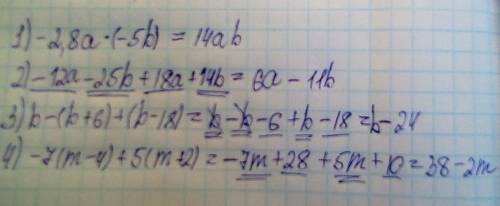 1) -2,8a·(-5b) = 14ab
2) -12a-25b+18a+14b = 6a-11b
3) b-(b+6)+(b-18)=b-b-6+b-18=b-24
4) -7(m-4)+5(m+2)=-7m+28+5m+10=38-2m